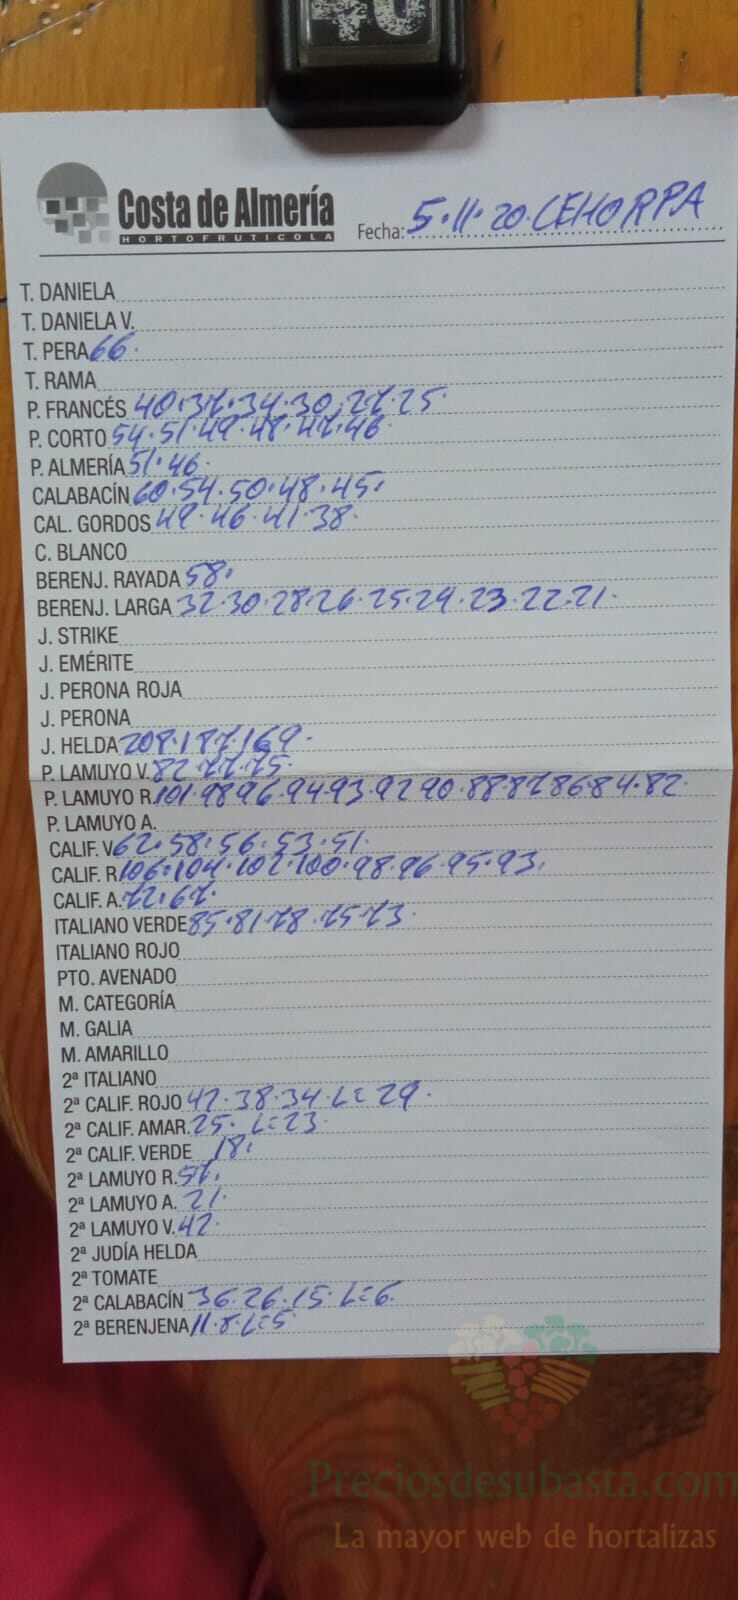 Costa de Almería
HORTOFRUTICOLA
Fecha: 5.11.20 CEHORPA
T. DANIELA
T. DANIELA V.
T. PERA 66.
T. RAMA
P. FRANCÉS 40.37.34.30.27.25.
P. CORTO 54.51.49.48.47.46
P. ALMERÍA 51.46.
CALABACÍN 60.54.50.48.45.
CAL. GORDOS 49.46.41.38.
C. BLANCO
BERENJ. RAYADA 58.
BERENJ. LARGA 32.30.28.26.25.24.23.22.21.
J. STRIKE
J. EMÉRITE
J. PERONA ROJA
J. PERONA
J. HELDA 208.187.169.
P. LAMUYO V. 82.77.75.
P. LAMUYO R. 101.98.96.94.93.92.90.88.87.86.84.82.
P. LAMUYO A.
CALIF. V. 62.58.56.53.51.
CALIF. R. 106.104.102.100.98.96.95.93.
CALIF. A. 72.67.
ITALIANO VERDE 85.81.78.75.73.
ITALIANO ROJO
PTO. AVENADO
M. CATEGORÍA
M. GALIA
M. AMARILLO
2ª ITALIANO
2ª CALIF. ROJO 42.38.34.L=29.
2ª CALIF. AMAR. 25. L=23.
2ª CALIF. VERDE 18.
2ª LAMUYO R. 57.
2ª LAMUYO A. 21.
2ª LAMUYO V. 42.
2ª JUDÍA HELDA
2ª TOMATE
2ª CALABACÍN 36.26.15.L=6.
2ª BERENJENA 11.8.L=5
Preciosdesubasta.com
La mayor web de hortalizas